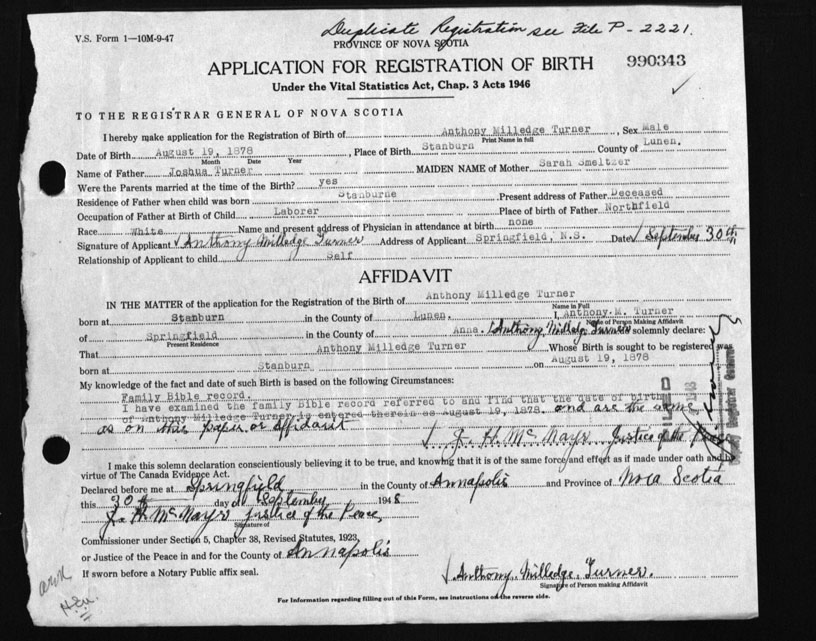 Duplicate Registration see File P-2221.
V.S. Form 1—10M-9-47
PROVINCE OF NOVA SCOTIA
APPLICATION FOR REGISTRATION OF BIRTH 990343
Under the Vital Statistics Act, Chap. 3 Acts 1946
TO THE REGISTRAR GENERAL OF NOVA SCOTIA
I hereby make application for the Registration of Birth of Anthony Milledge Turner, Sex Male
Print Name in full
Date of Birth August 19, 1878, Place of Birth Stanburn County of Lunen.
Month Date Year
Name of Father Joshua Turner MAIDEN NAME of Mother Sarah Smeltzer
Were the Parents married at the time of the Birth? yes
Residence of Father when child was born Stanburne Present address of Father Deceased
Occupation of Father at Birth of Child Laborer Place of birth of Father Northfield
Race White Name and present address of Physician in attendance at birth none
Signature of Applicant Anthony Milledge Turner Address of Applicant Springfield, N.S. Date September 30th
Relationship of Applicant to child Self
AFFIDAVIT
IN THE MATTER of the application for the Registration of the Birth of Anthony Milledge Turner
Name in Full
born at Stanburn in the County of Lunen. I, Anthony M. Turner
Name of Person Making Affidavit
of Springfield in the County of Anna. Anthony Milledge Turner do solemnly declare:
Present Residence
That Anthony Milledge Turner Whose Birth is sought to be registered was
born at Stanburn on August 19, 1878
My knowledge of the fact and date of such Birth is based on the following Circumstances:
Family Bible record.
I have examined the family Bible record referred to and find that the date of birth
of Anthony Milledge Turner is entered therein as August 19, 1878. and are the same
as on this paper or affidavit
J. H. McNayr Justice of the Peace
I make this solemn declaration conscientiously believing it to be true, and knowing that it is of the same force and effect as if made under oath and in
virtue of The Canada Evidence Act.
Declared before me at Springfield in the County of Annapolis and Province of Nova Scotia
this 30th day of September 1948
J. H. McNayr Justice of the Peace,
Signature of
Commissioner under Section 5, Chapter 38, Revised Statutes, 1923,
or Justice of the Peace in and for the County of Annapolis
If sworn before a Notary Public affix seal.
Anthony Milledge Turner.
Signature of Person making Affidavit
For Information regarding filling out of this Form, see instructions on the reverse side.